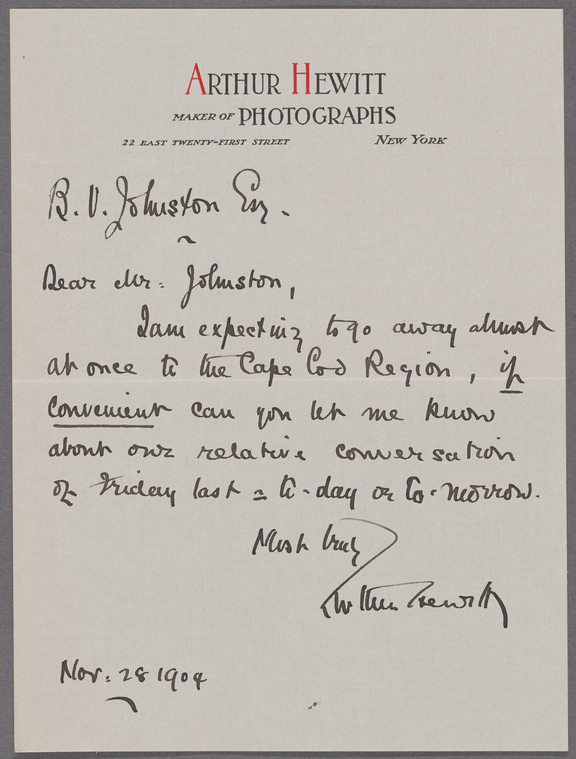 ARTHUR HEWITT
MAKER OF PHOTOGRAPHS
22 EAST TWENTY-FIRST STREET NEW YORK
B. V. Johnston Esq.
Dear Mr: Johnston,
I am expecting to go away almost
at once to the Cape Cod Region, if
convenient can you let me know
about our relative conversation
of Friday last = to-day or to-morrow.
Most truly
Arthur Hewitt
Nov: 28 1904